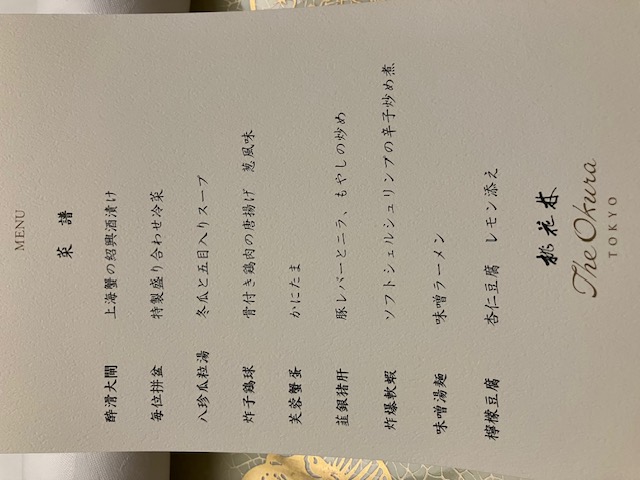 MENU
菜 譜
酔滑大閘 上海蟹の紹興酒漬け
毎位拼盆 特製盛り合わせ冷菜
八珍瓜粒湯 冬瓜と五目入りスープ
炸子鶏球 骨付き鶏肉の唐揚げ 葱風味
芙蓉蟹蛋 かにたま
韮銀猪肝 豚レバーとニラ、もやしの炒め
炸爆軟蝦 ソフトシェルシュリンプの辛子炒め煮
味噌湯麺 味噌ラーメン
檸檬豆腐 杏仁豆腐 レモン添え
桃花林
The Okura
TOKYO